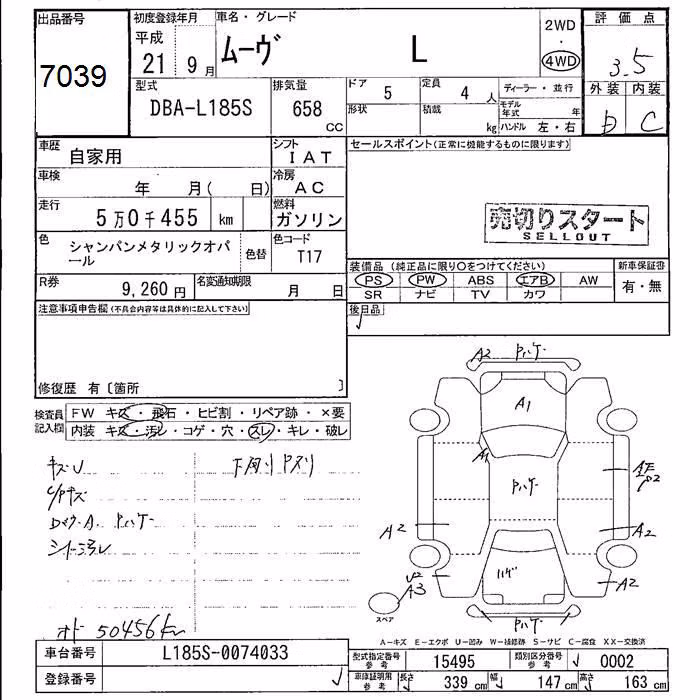 出品番号
7039
初度登録年月
平成
21 9月
車名・グレード
ムーヴ L
2WD
・
4WD
評価点
3.5
外装 内装
D C
型式
DBA-L185S
排気量
658 CC
ドア 5
定員 4 人
形状
積載 kg
ディーラー・並行
モデル年式 年
ハンドル 左・右
車歴 自家用
シフト IAT
セールスポイント(正常に機能するものに限ります)
車検 年 月( 日)
冷房 AC
走行 5万0千455 km
燃料 ガソリン
売切りスタート
SELLOUT
色 シャンパンメタリックオパール
色替
色コード T17
R券 9,260円
名変通知期限 月 日
装備品(純正品に限り○をつけてください)
PS PW ABS エアB AW
SR ナビ TV カワ
新車保証書
有・無
注意事項申告欄(不具合内容等は具体的に記入して下さい)
後日品
修復歴 有〔箇所 〕
検査員記入欄
FW キズ・飛石・ヒビ割・リペア跡・×要
内装 キズ・汚レ・コゲ・穴・スレ・キレ・破レ
キズU
下廻りサビ
C/Pキズ
シートヨゴレ
オド 50456km
A2
A1
A1
A2
A2
U2
A3
A2
ハゲ
スペア
A-キズ E-エクボ U-凹み W-補修跡 S-サビ C-腐食 XX-交換済
車台番号 L185S-0074033
登録番号
型式指定番号参考 15495
類別区分番号参考 0002
車庫証明用参考
長さ 339 cm
幅 147 cm
高さ 163 cm